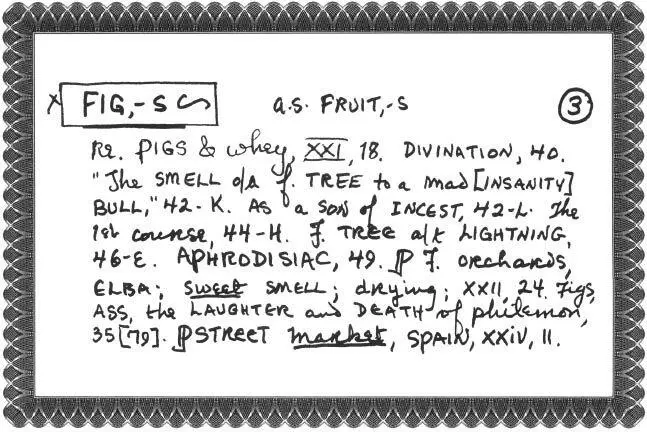 x FIG,-S a.s. FRUIT,-S 3
Re. PIGS & whey, XXI, 18. DIVINATION, 40.
"The SMELL o/a f. TREE to a mad [INSANITY]
BULL," 42-K. AS a SON of INCEST, 42-L. The
1st course, 44-H. F. TREE a/t LIGHTNING,
46-E. APHRODISIAC, 49. P F. orchards,
ELBA; sweet SMELL; drying; XXII, 24. Figs,
ASS, the LAUGHTER and DEATH of philemon,
35[79]. P STREET market, SPAIN, XXIV, 11.